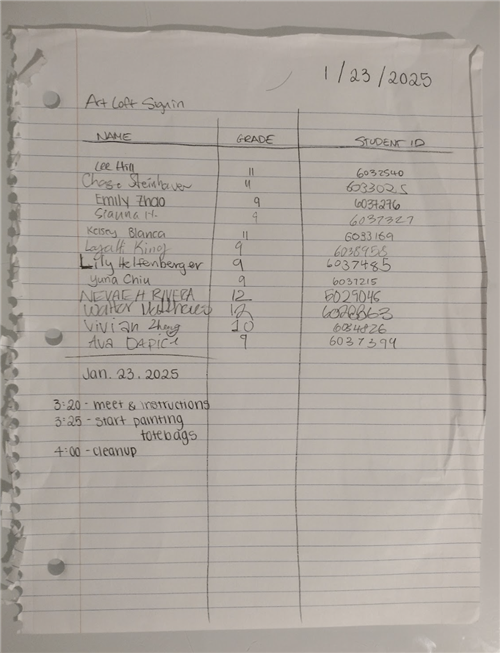 1/23/2025
Art Loft Signin
NAME GRADE STUDENT ID
Lee Hill 11 6032540
Chase Steinhauer 11 6033025
Emily Zhao 9 6037276
Sianna H. 9 6037327
Kelsey Blanca 11 6033169
King 9
Lily Helfenberger 9 6037485
Yuna Chiu 9 6037215
NEVAEH RIVERA 12 5029046
Walter Matthews 12
Vivian Zheng 10 6034826
Ava 9 6037394
Jan. 23. 2025
3:20 - meet & instructions
3:25 - start painting
totebags
4:00 - cleanup